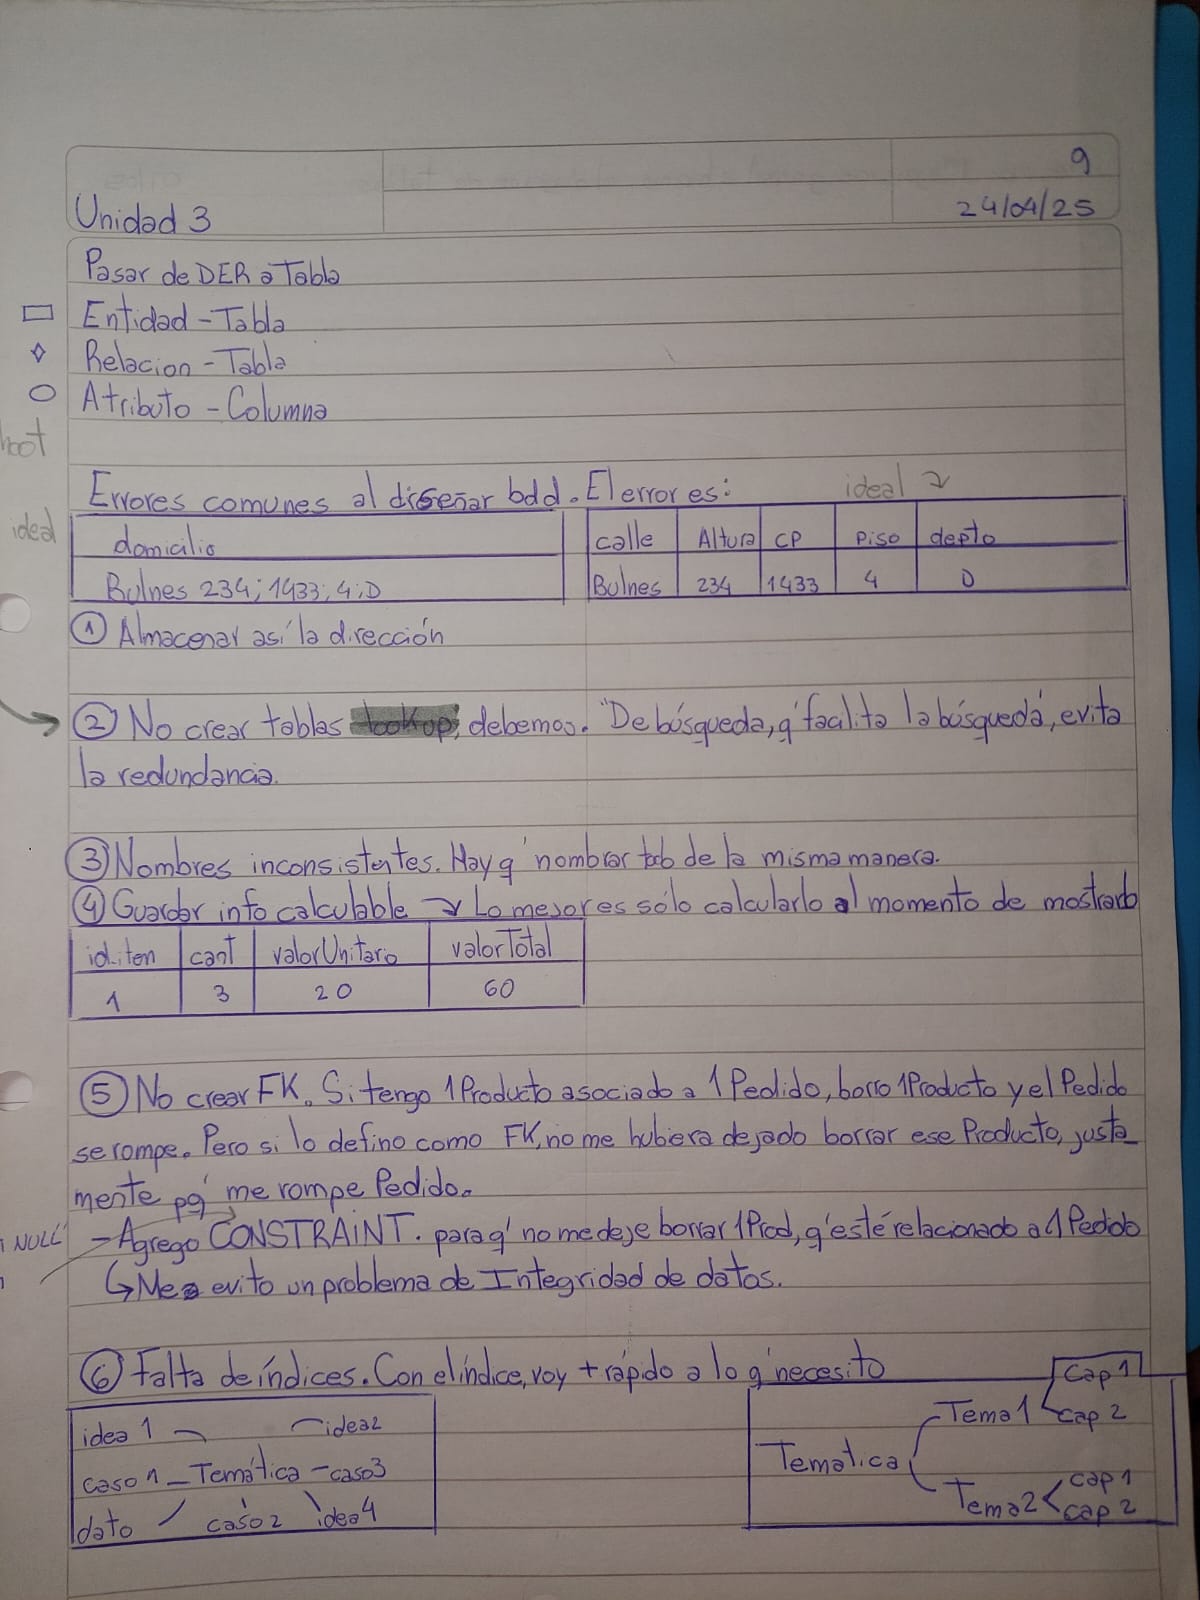 9
24/04/25
Unidad 3
Pasar de DER a Tabla
Entidad - Tabla
Relacion - Tabla
Atributo - Columna
Errores comunes al diseñar bdd. El error es: ideal
ideal
domicilio
Bulnes 234; 1433; 4; D
calle Altura CP Piso depto
Bulnes 234 1433 4 D
① Almacenar así la dirección
② No crear tablas lookup, debemos. "De búsqueda, q' facilita la búsqueda, evita
la redundancia.
③ Nombres inconsistentes. Hay q' nombrar todo de la misma manera.
④ Guardar info calculable → Lo mejor es sólo calcularlo al momento de mostrarlo
id.iten cant valorUnitario valorTotal
1 3 20 60
⑤ No crear FK. Si tengo 1 Producto asociado a 1 Pedido, borro 1 Producto y el Pedido
se rompe. Pero si lo defino como FK, no me hubiera dejado borrar ese Producto, justa
mente pq' me rompe Pedido.
NULL
- Agrego CONSTRAINT. para q' no me deje borrar 1 Prod, q' esté relacionado a 1 Pedido
↳ Me evito un problema de Integridad de datos.
⑥ Falta de índices. Con el índice, voy + rápido a lo q' necesito
idea 1 idea2
caso 1 - Temática - caso3
dato caso2 idea4
Cap 1
Tema 1 cap 2
Tematica
Tema2 < cap 1
cap 2